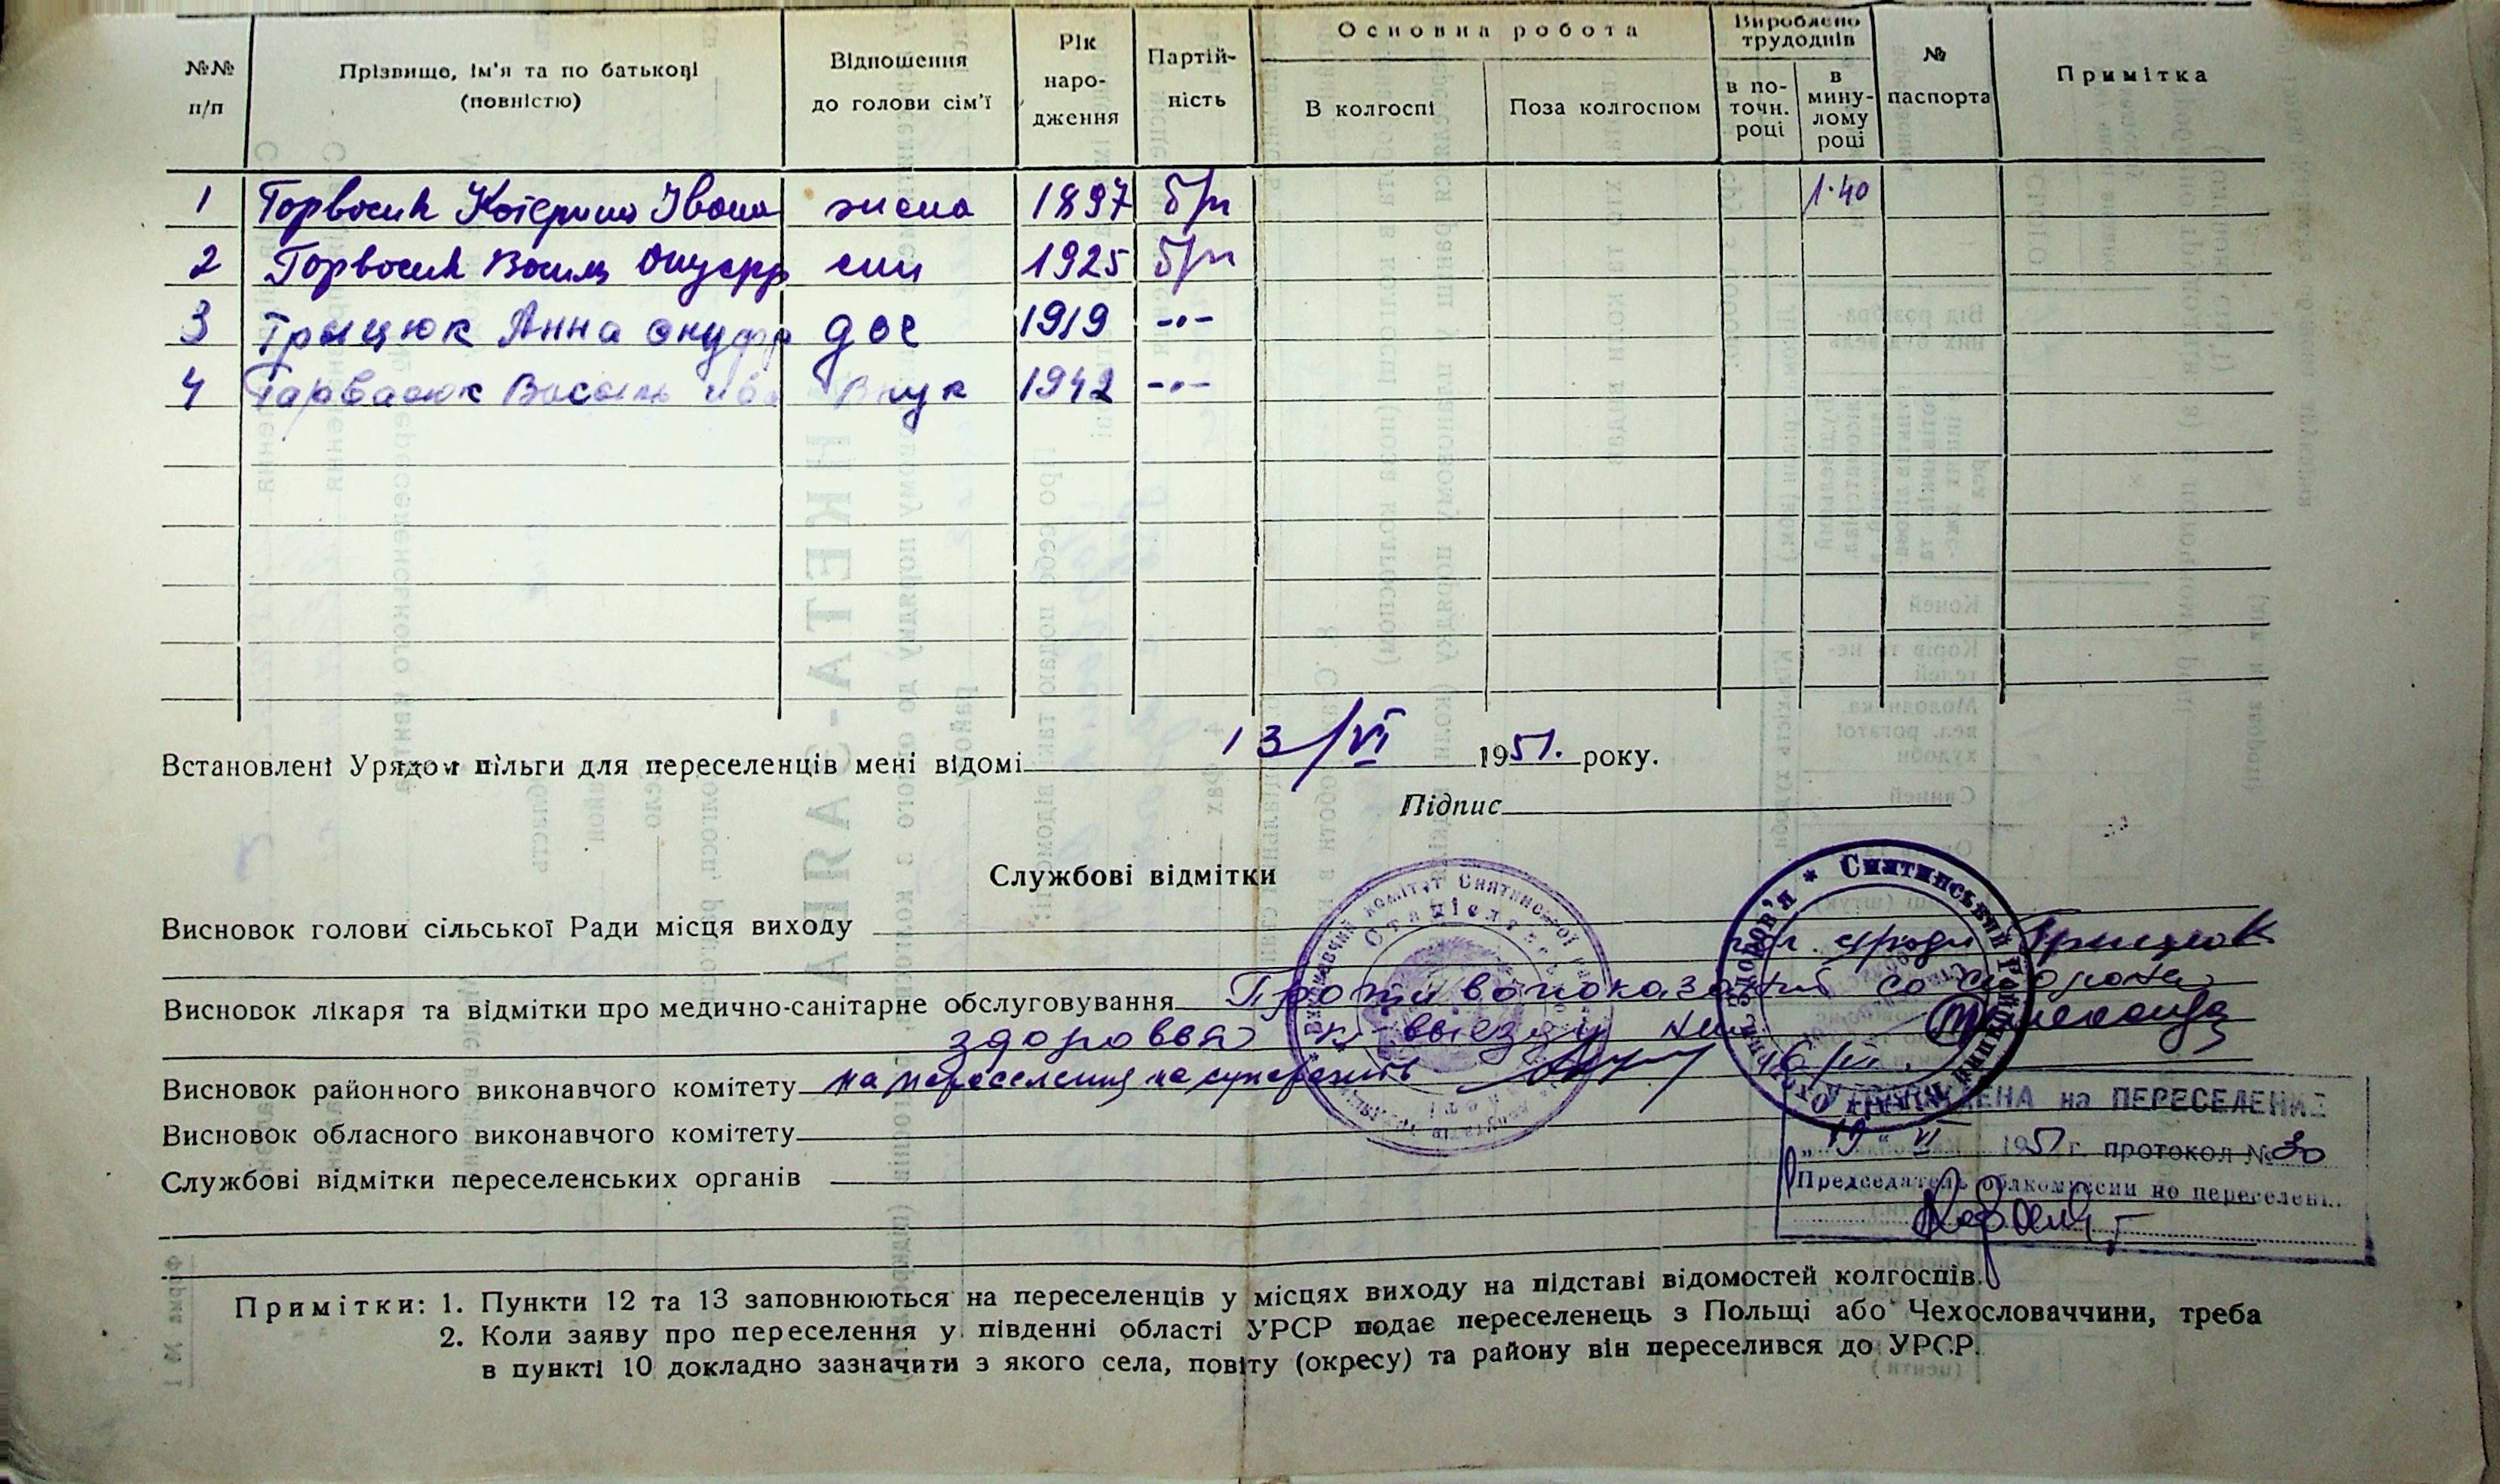 №№ п/п
Прізвище, ім'я та по батькові (повністю)
Відношення до голови сім'ї
Рік народження
Партійність
Основна робота
В колгоспі
Поза колгоспом
Вироблено трудоднів
в поточн. році
в минулому році
№ паспорта
Примітка
1 Горвасюк Катерина Івана жена 1897 б/п 140
2 Горвасюк Василь Онуфр син 1925 б/п
3 Грыцюк Анна онуфр доч 1919 -"-
4 Гарвасюк Василь Ива Внук 1942 -"-
Встановлені Урядом пільги для переселенців мені відомі 13/VI 1951. року.
Підпис
Службові відмітки
Висновок голови сільської Ради місця виходу
гол. с/ради Грицюк
Висновок лікаря та відмітки про медично-санітарне обслуговування Противопоказаний со стороны
здоровья к выезду нет
Висновок районного виконавчого комітету на переселення не суперечить 16/VI.
Висновок обласного виконавчого комітету
УТВЕРЖДЕНА на ПЕРЕСЕЛЕНИЕ
„19" VI 1951 г. протокол № 30
Службові відмітки переселенських органів
Председатель облкомиссии по переселен..
Примітки: 1. Пункти 12 та 13 заповнюються на переселенців у місцях виходу на підставі відомостей колгоспів.
2. Коли заяву про переселення у південні області УРСР подає переселенець з Польщі або Чехословаччини, треба
в пункті 10 докладно зазначити з якого села, повіту (окресу) та району він переселився до УРСР.